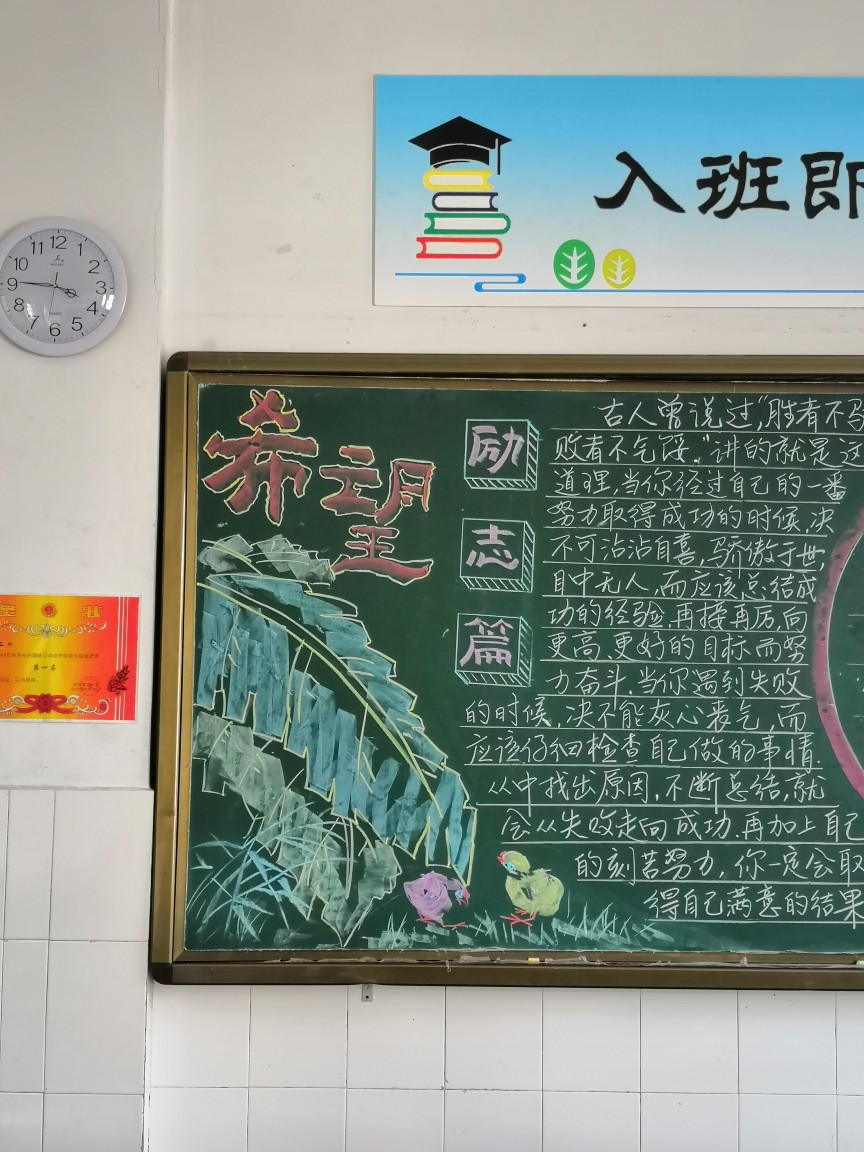 入班即
12
1
2
3
4
5
6
7
8
9
10
11
希望
励
志
篇
古人曾说过"胜者不骄
败者不气馁."讲的就是这
道理.当你经过自己的一番
努力取得成功的时候,决
不可沾沾自喜,骄傲于世,
目中无人,而应该总结成
功的经验.再接再厉,向
更高、更好的目标而努
力奋斗.当你遇到失败
的时候,决不能灰心丧气,而
应该仔细检查自己做的事情.
从中找出原因,不断总结,就
会从失败走向成功.再加上自己
的刻苦努力,你一定会取
得自己满意的结果
状
第一名